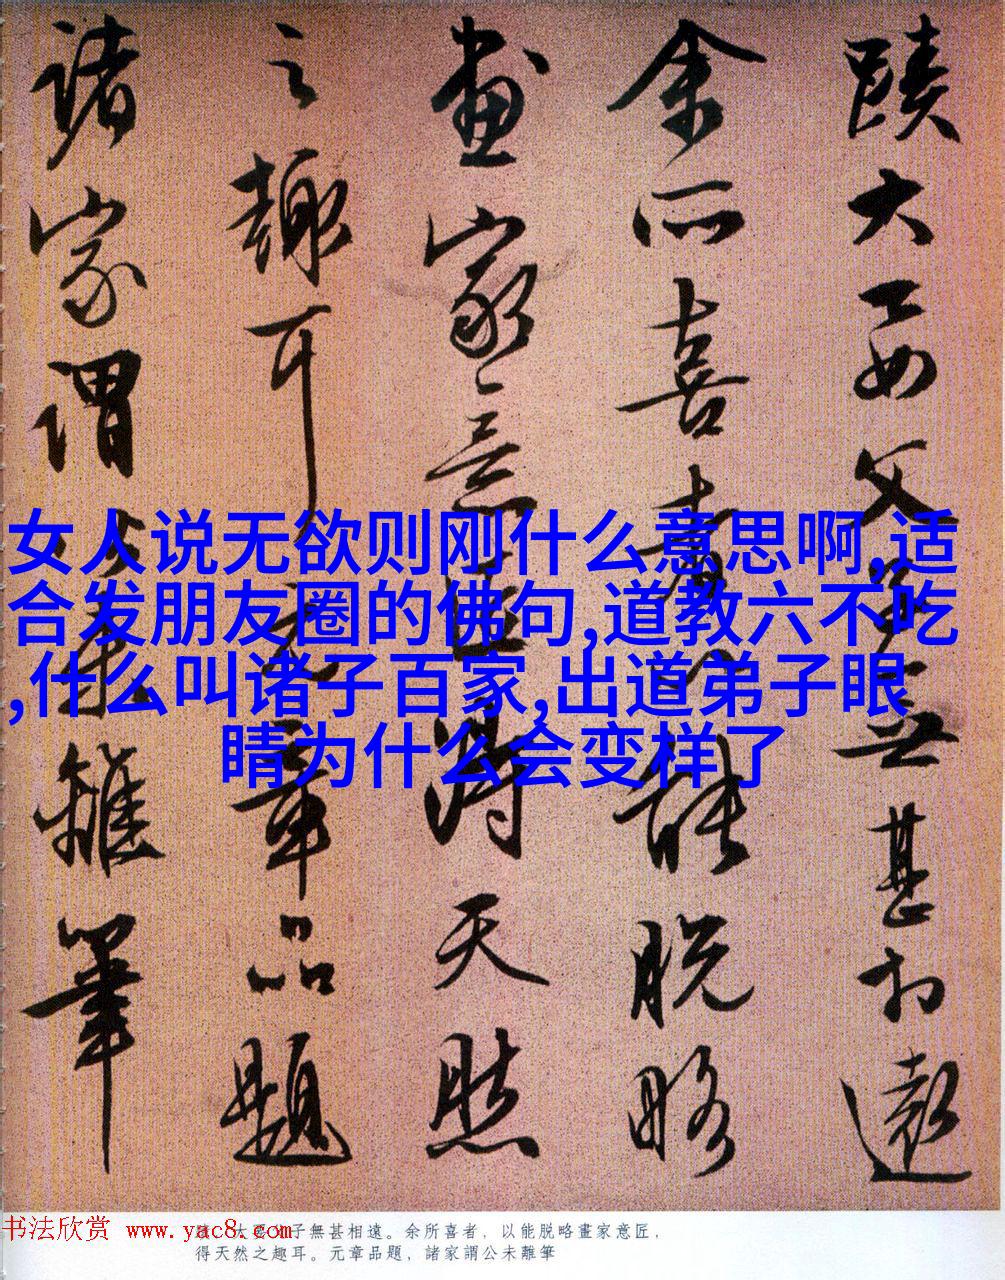 蹟大要父子無甚相遠
余所喜者以能脱略
畫家意匠得天然
之趣耳元章品題
諸家謂公未離筆
女人说无欲则刚什么意思啊,适
合发朋友圈的佛句,道教六不吃
,什么叫诸子百家,出道弟子眼
睛为什么会变样了
大要父子無甚相遠。余所喜者，以能脱略畫家意匠，
得天然之趣耳。元章品題，諸家謂公未離筆
书法欣赏 www.yac8.com